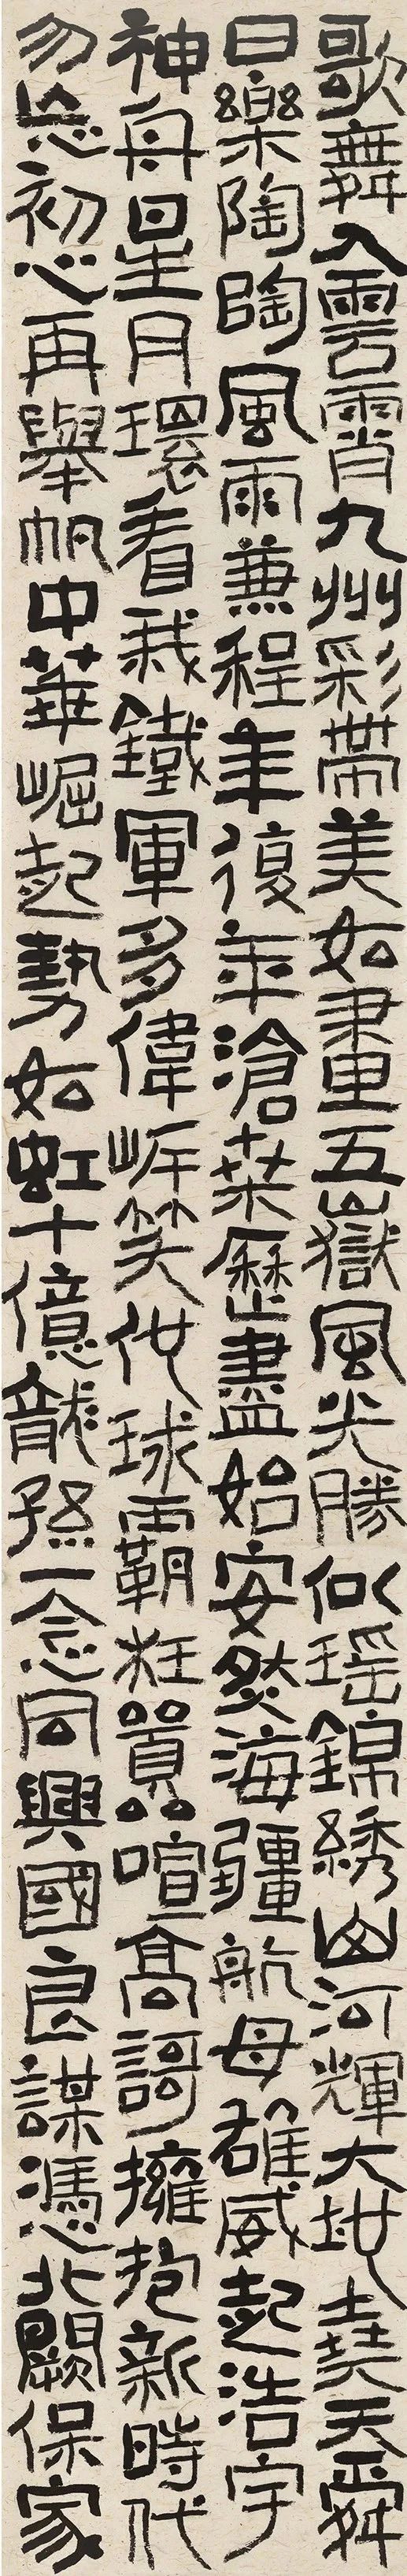 歌舞入雲霄九州彩帶美如畫五嶽風光勝似瑤錦綉山河輝大地堯天舜
日樂陶陶風雨兼程年復年滄桑歷盡始安然海疆航母雄威起浩宇
神舟星月環看我鐵軍多偉岸笑他球霸狂囂喧高謌擁抱新時代
勿忘初心再舉帆中華崛起勢如虹十億龍孫一念同興國良謀憑北闕保家